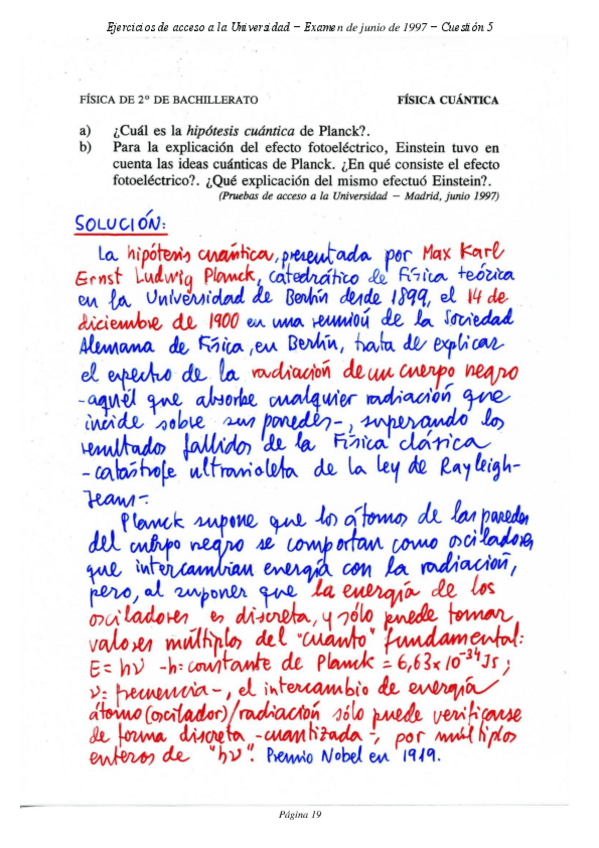 Ejercicios de acceso a la Universidad − Examen de junio de 1997 − Cuestión 5
FÍSICA DE 2º DE BACHILLERATO FÍSICA CUÁNTICA
a) ¿Cuál es la hipótesis cuántica de Planck?.
b) Para la explicación del efecto fotoeléctrico, Einstein tuvo en
cuenta las ideas cuánticas de Planck. ¿En qué consiste el efecto
fotoeléctrico?. ¿Qué explicación del mismo efectuó Einstein?.
(Pruebas de acceso a la Universidad − Madrid, junio 1997)
SOLUCIÓN:
La hipótesis cuántica, presentada por Max Karl
Ernst Ludwig Planck, catedrático de Física teórica
en la Universidad de Berlín desde 1899, el 14 de
diciembre de 1900 en una reunión de la Sociedad
Alemana de Física, en Berlín, trata de explicar
el espectro de la radiación de un cuerpo negro
-aquél que absorbe cualquier radiación que
incide sobre sus paredes-, superando los
resultados fallidos de la Física clásica
-catástrofe ultravioleta de la ley de Rayleigh-
Jeans-.
Planck supone que los átomos de las paredes
del cuerpo negro se comportan como osciladores
que intercambian energía con la radiación,
pero, al suponer que la energía de los
osciladores es discreta, y sólo puede tomar
valores múltiplos del "cuanto" fundamental:
E = hν -h = constante de Planck = 6,63x10⁻³⁴ Js ;
ν = frecuencia-, el intercambio de energía
átomo (oscilador)/radiación sólo puede verificarse
de forma discreta -cuantizada-, por múltiplos
enteros de "hν". Premio Nobel en 1919.
Página 19